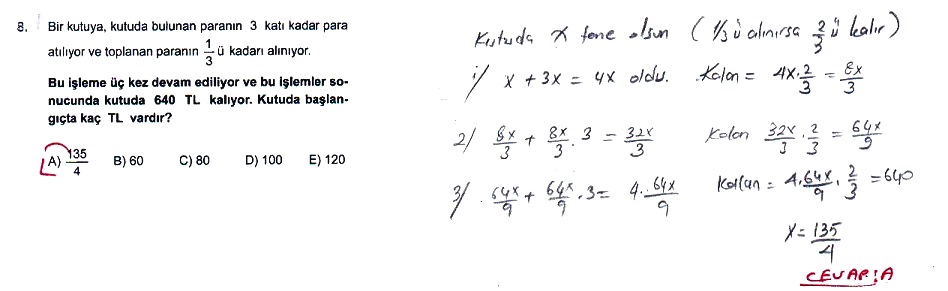 8. Bir kutuya, kutuda bulunan paranın 3 katı kadar para
atılıyor ve toplanan paranın 1/3 ü kadarı alınıyor.
Bu işleme üç kez devam ediliyor ve bu işlemler so-
nucunda kutuda 640 TL kalıyor. Kutuda başlan-
gıçta kaç TL vardır?
A) 135/4 B) 60 C) 80 D) 100 E) 120
Kutuda x tane olsun (1/3 ü alınırsa 2/3 ü kalır)
1/ x + 3x = 4x oldu. Kalan = 4x.2/3 = 8x/3
2/ 8x/3 + 8x/3 . 3 = 32x/3 Kalan 32x/3 . 2/3 = 64x/9
3/ 64x/9 + 64x/9 . 3 = 4 . 64x/9 Kalan = 4.64x/9 . 2/3 = 640
x = 135/4
CEVAP: A